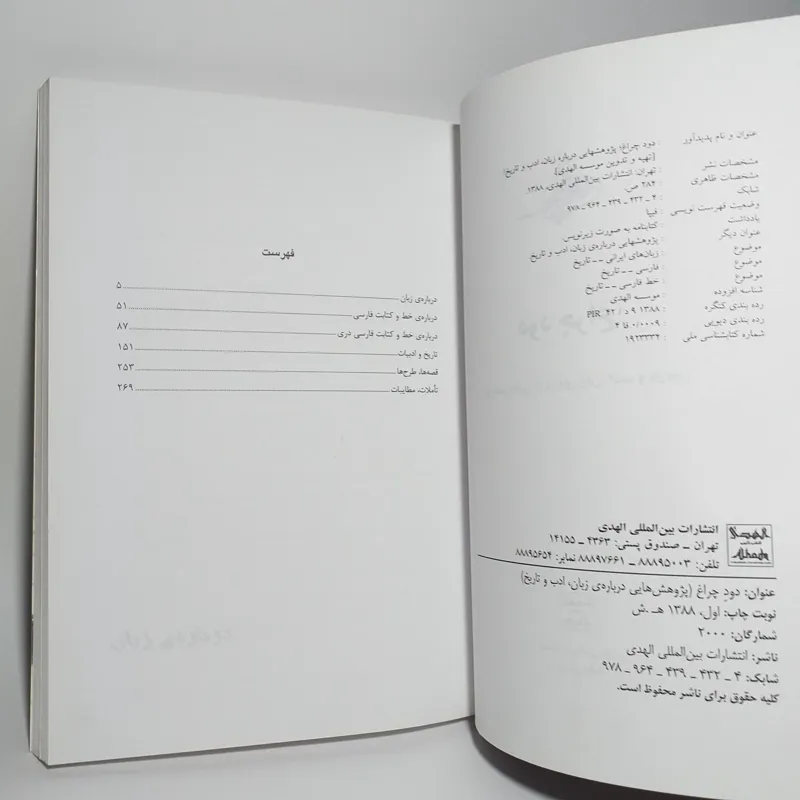 عنوان و نام پدیدآور : دود چراغ؛ پژوهشهایی درباره زبان، ادب و تاریخ/
[تهیه و تدوین موسسه الهدی].
مشخصات نشر : تهران، انتشارات بین‌المللی الهدی، ۱۳۸۸.
مشخصات ظاهری : ۲۸۴ ص.
شابک : ۴ ـ ۴۳۲ ـ ۴۳۹ ـ ۹۶۴ ـ ۹۷۸
وضعیت فهرست نویسی : فیپا
یادداشت : کتابنامه به صورت زیرنویس.
عنوان دیگر : پژوهشهایی درباره‌ی زبان، ادب و تاریخ
موضوع : زبان‌های ایرانی ــ تاریخ
موضوع : فارسی ــ تاریخ
موضوع : خط فارسی ــ تاریخ
شناسه افزوده : موسسه الهدی
رده بندی کنگره : PIR ۴۲ / د ۹ ۱۳۸۸
رده بندی دیویی : ۴ فا ۰/۰۰۰۹
شماره کتابشناسی ملی : ۱۹۲۳۳۳۴
الهدی
Alhoda
انتشارات بین‌المللی الهدی
تهران ـ صندوق پستی: ۴۳۶۳ ـ ۱۴۱۵۵
تلفن: ۸۸۸۹۵۰۰۳ ـ ۸۸۸۹۷۶۶۱ نمابر: ۸۸۸۹۵۶۵۴
عنوان: دودِ چراغ (پژوهش‌هایی درباره‌ی زبان، ادب و تاریخ)
نوبت چاپ: اول، ۱۳۸۸ هـ .ش
شمارگان: ۲۰۰۰
ناشر: انتشارات بین‌المللی الهدی
شابک: ۴ ـ ۴۳۲ ـ ۴۳۹ ـ ۹۶۴ ـ ۹۷۸
کلیه حقوق برای ناشر محفوظ است.
فهرست
درباره‌ی زبان ........ ۵
درباره‌ی خط و کتابت فارسی ........ ۵۱
درباره‌ی خط و کتابت فارسی دری ........ ۸۷
تاریخ و ادبیات ........ ۱۵۱
قصه‌ها، طرح‌ها ........ ۲۵۳
تأملات، مطایبات ........ ۲۶۹